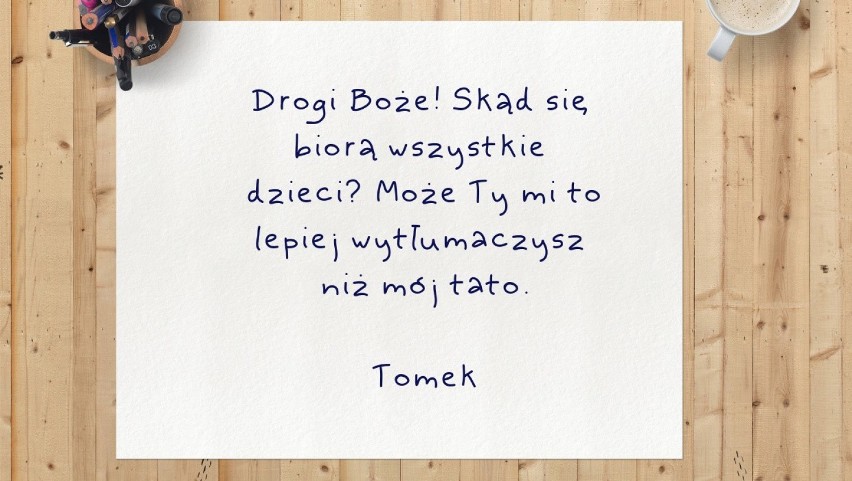 Drogi Boże! Skąd się
biorą wszystkie
dzieci? Może Ty mi to
lepiej wytłumaczysz
niż mój tato.
Tomek